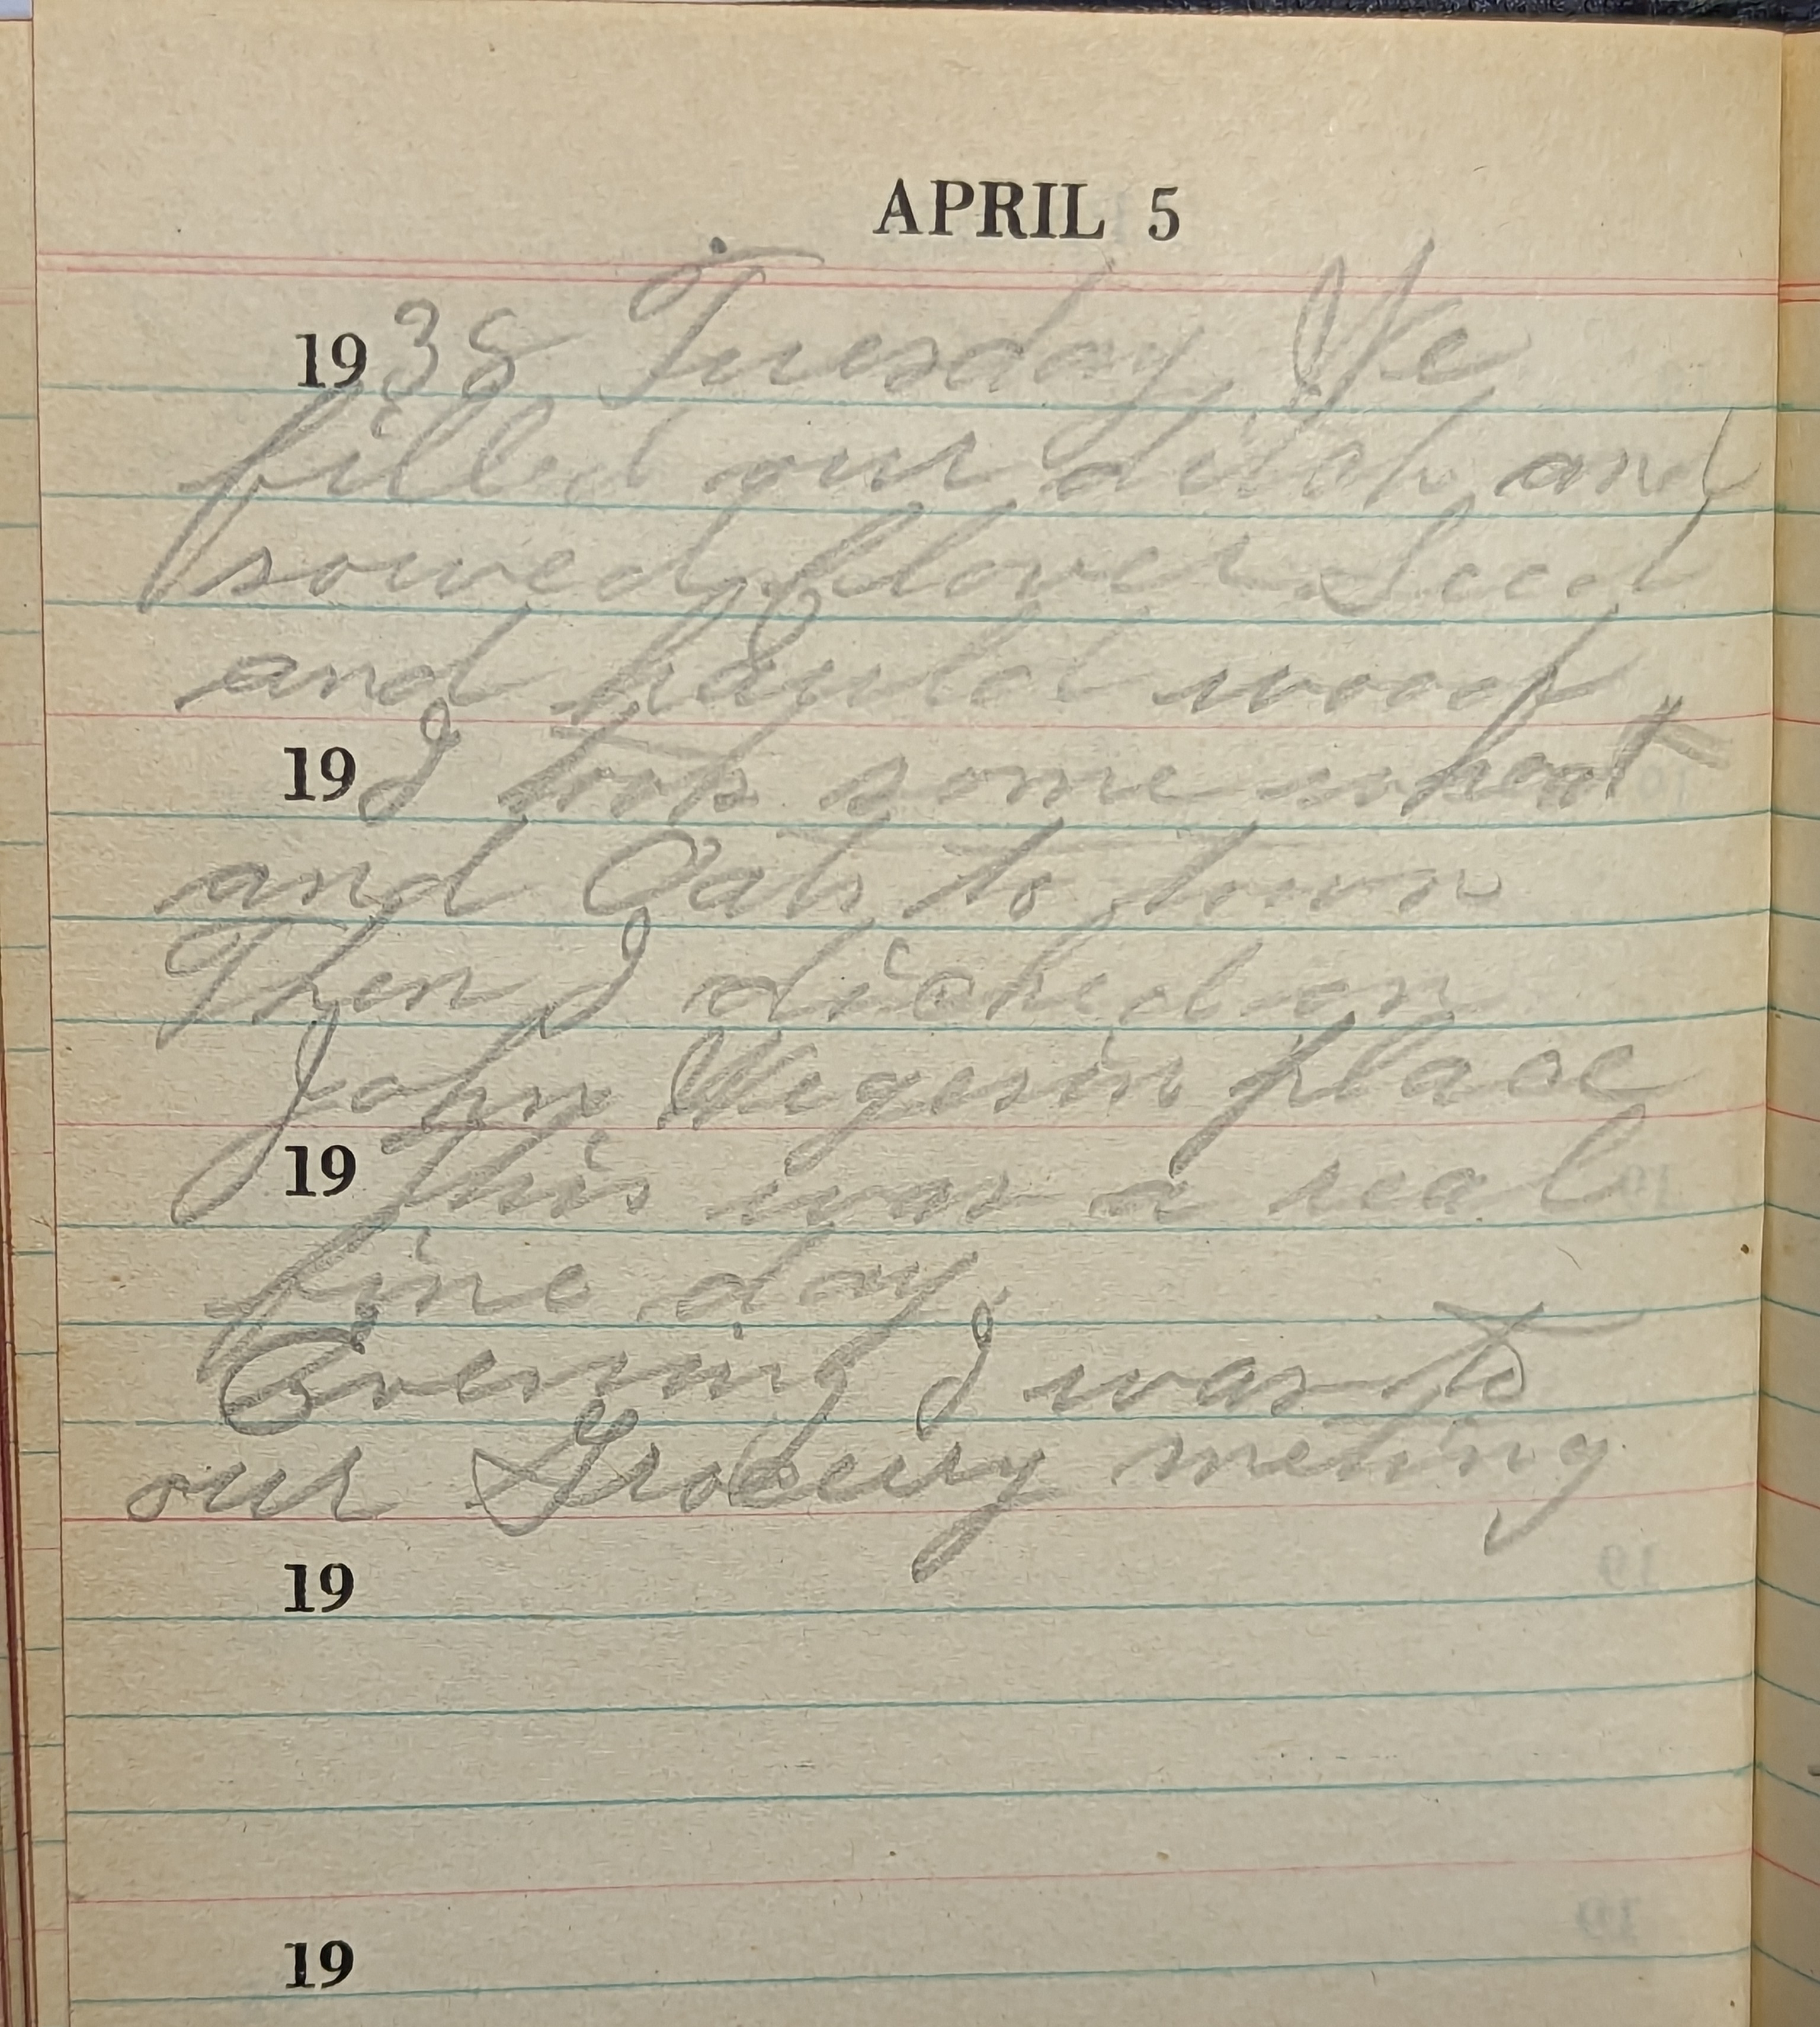 APRIL 5
1938 Tuesday We
filled our ditch and
sowed Clover Seed
and hauled wood
19 I took some wheat
and Oats to town
Then I disked on
John Wegesin place
19 This was a real
fine day
Evening I was to
our Grocery meting
19
19